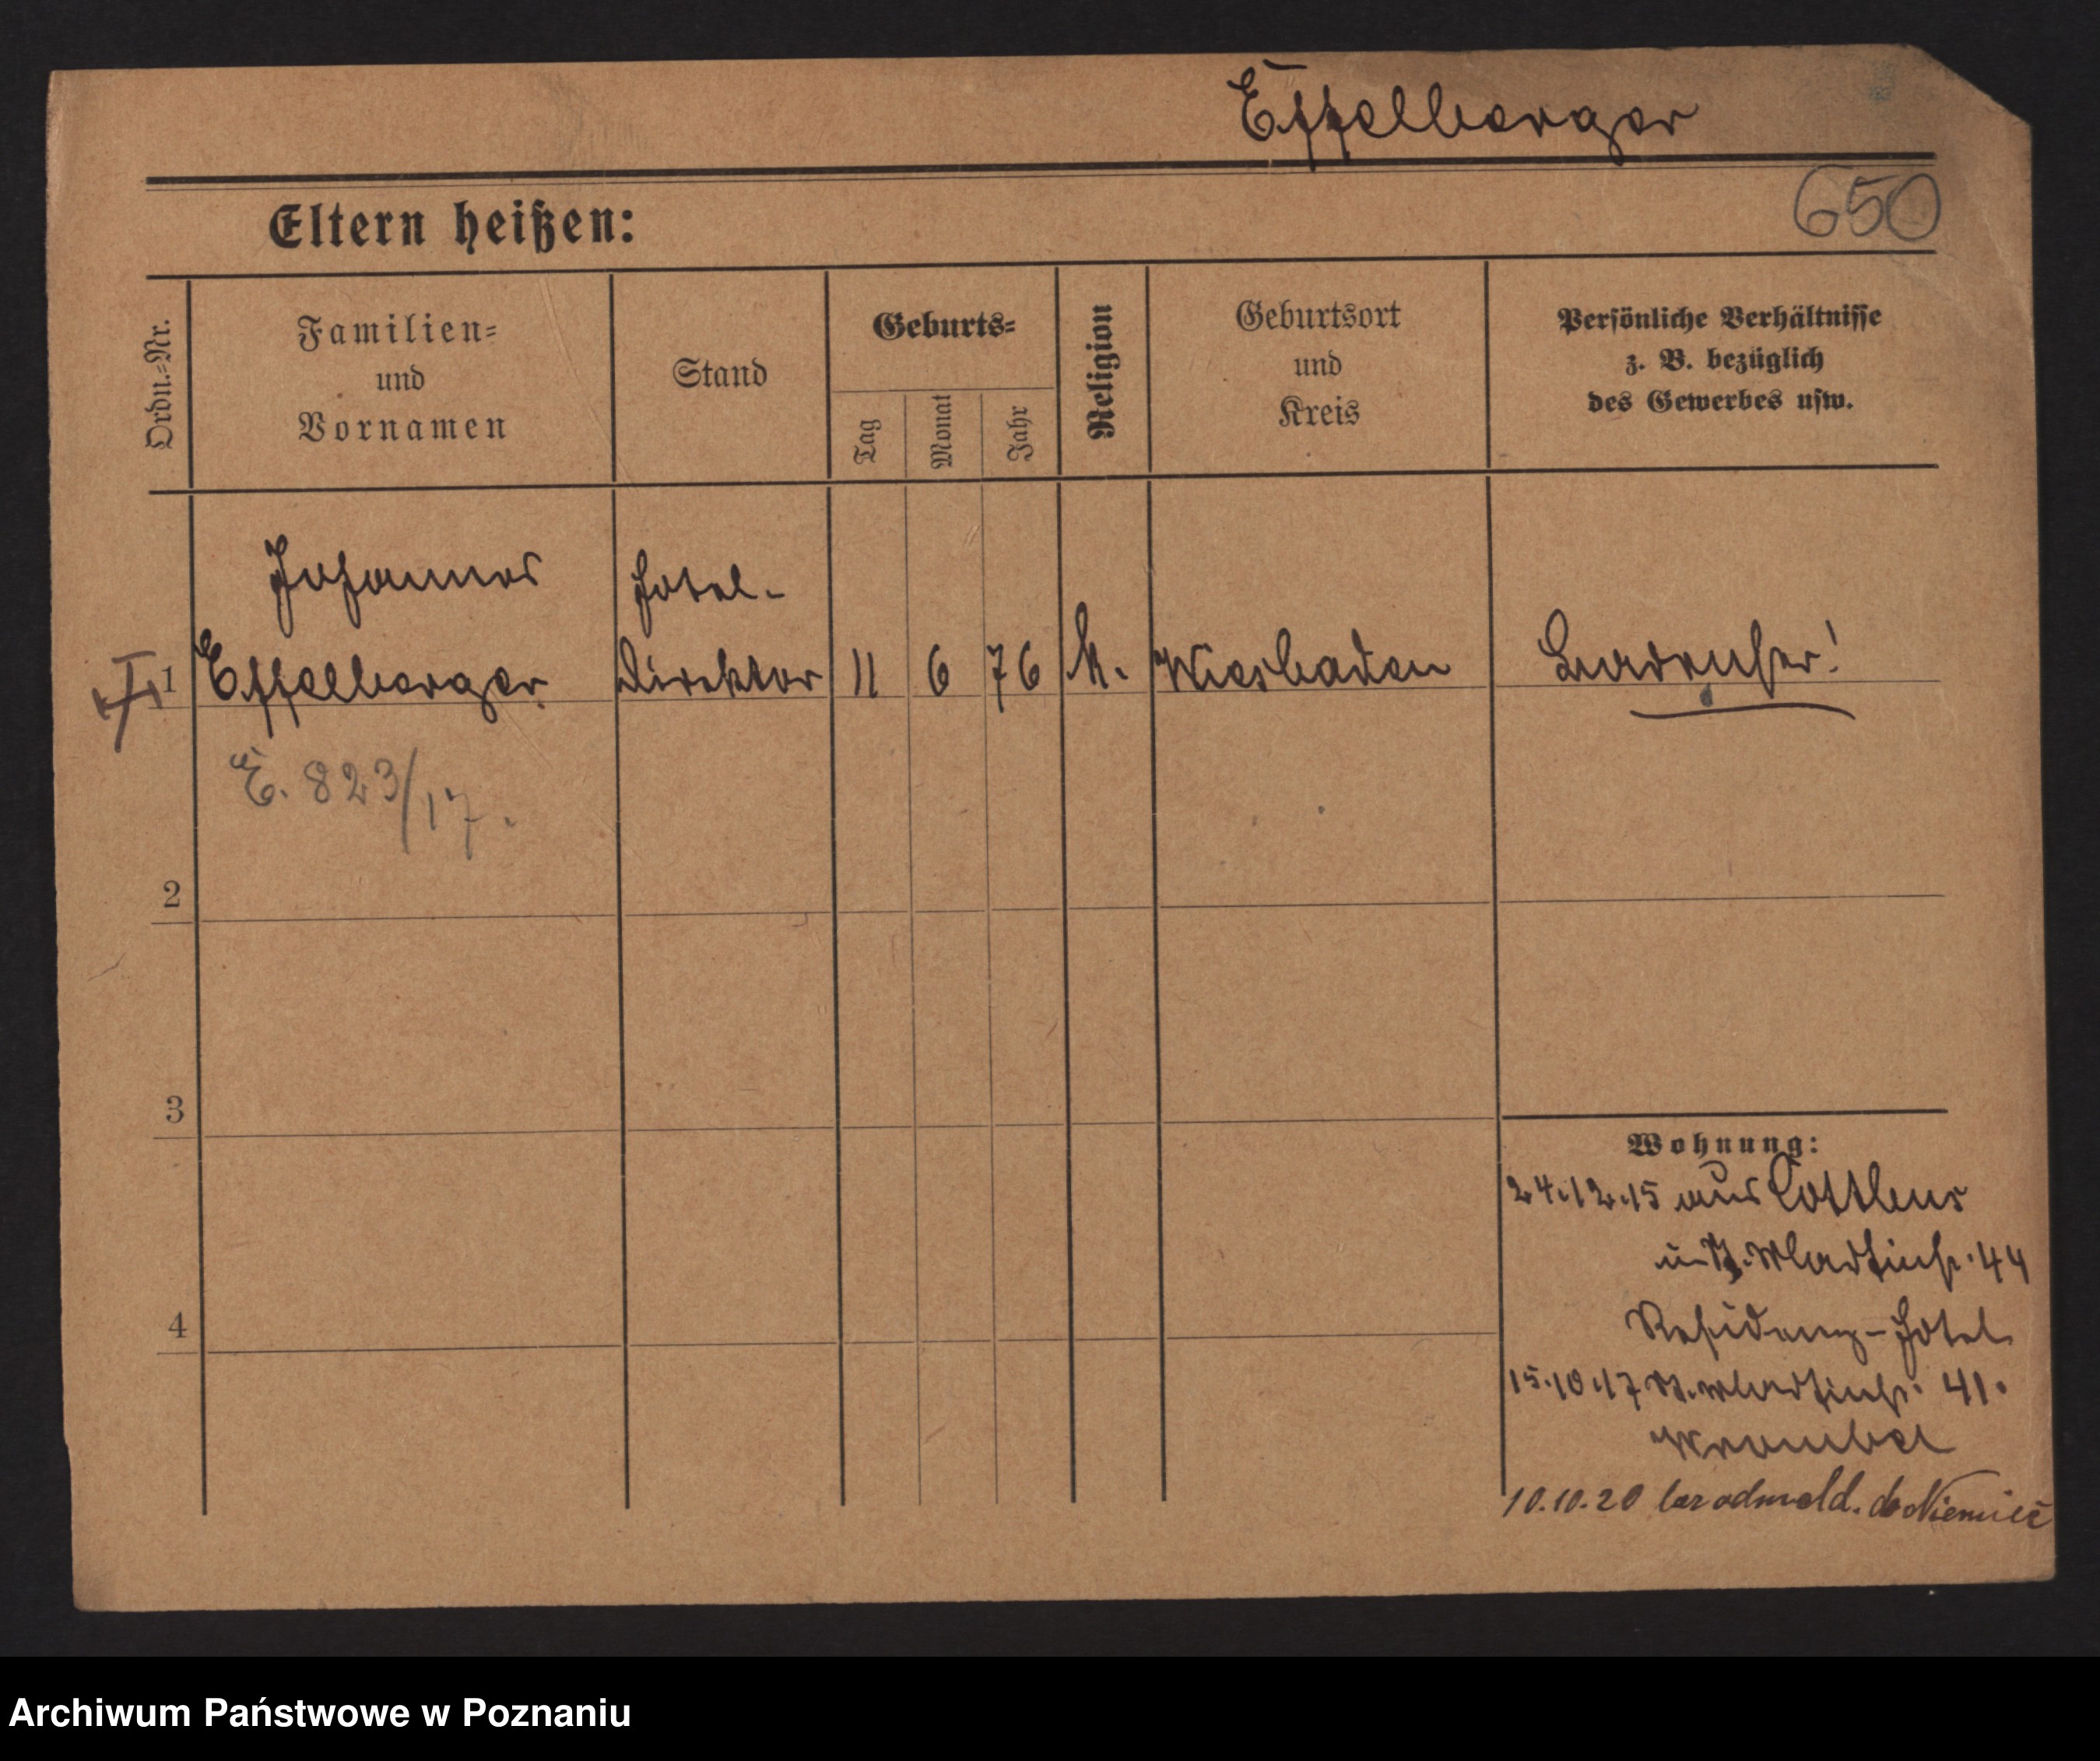 Effelberger
650
Eltern heißen:
Ordn.=Nr.
Familien=
und
Vornamen
Stand
Geburts=
Tag
Monat
Jahr
Religion
Geburtsort
und
Kreis
Persönliche Verhältnisse
z. B. bezüglich
des Gewerbes usw.
Johannes
Hotel-
1 Effelberger Direktor 11 6 76 k. Wiesbaden
E. 823/17.
2
3
4
Wohnung:
24.12.15 aus Cottbus
Martinstr. 44
Residenz-Hotel
15.10.17 St. Martinstr. 41.
10.10.20 odmeld. do Niemiec
Archiwum Państwowe w Poznaniu